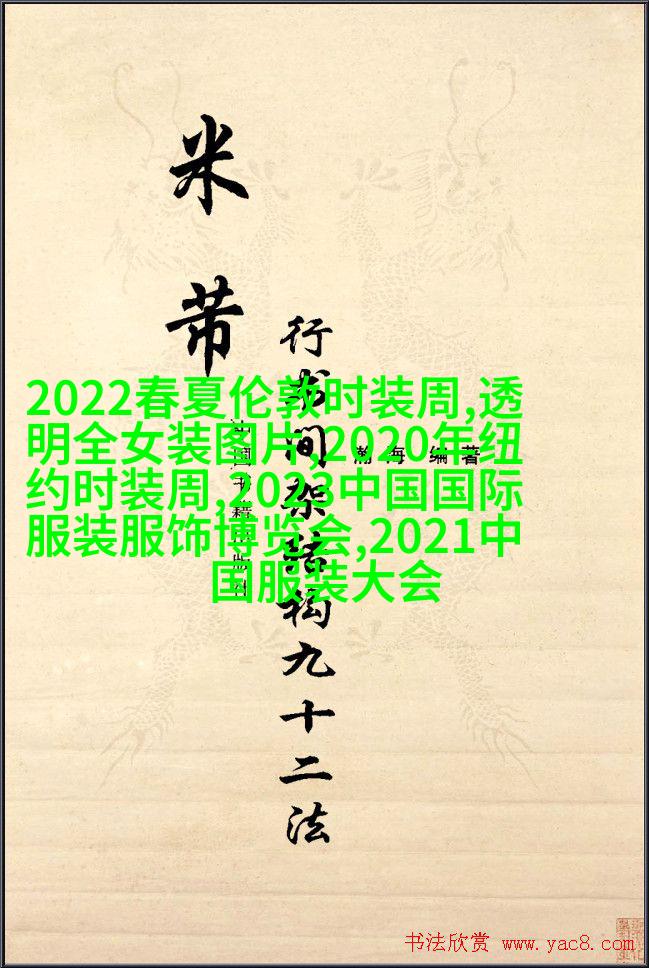 米芾
行书间架结构九十二法
瀚海 编著
中国书籍出版社
2022春夏伦敦时装周,透
明全女装图片,2020年纽
约时装周,2023中国国际
服装服饰博览会,2021中
国服装大会
书法欣赏 www.yac8.com